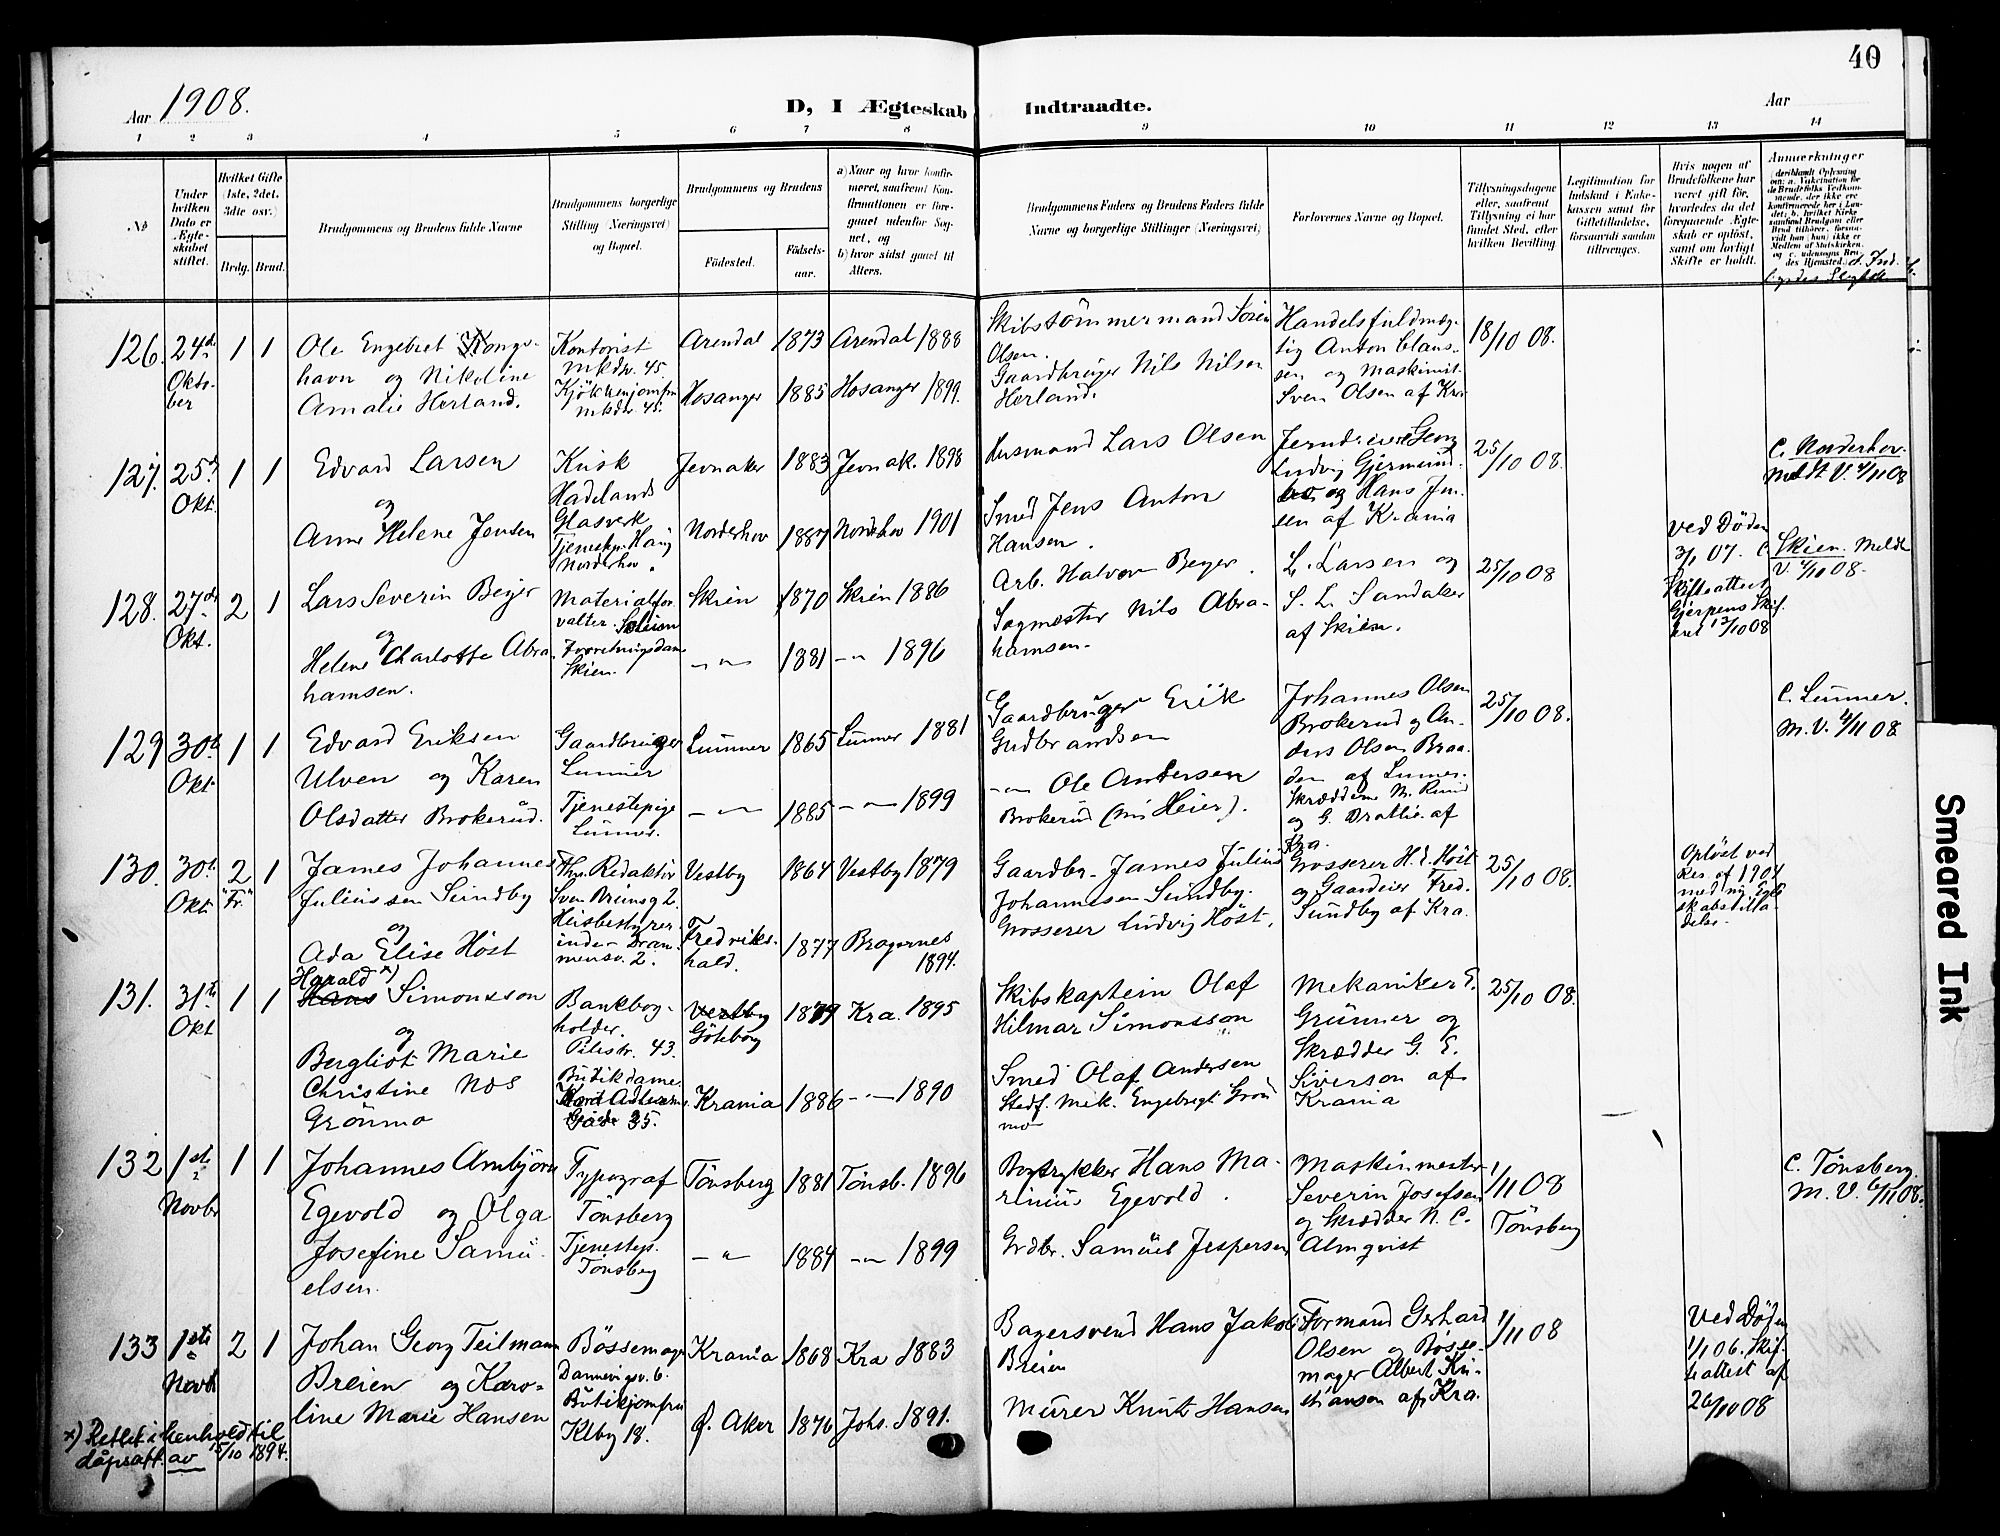 40
Aar 1908.
D, I Ægteskab Indtraadte.
Aar
1 2 3 4 5 6 7 8 9 10 11 12 13 14
No
Under hvilken Dato er Ægteskabet stiftet.
Hvilket Gifte (1ste, 2det, 3die osv.)
Brdg. Brud.
Brudgommens og Brudens fulde Navne
Brudgommens borgerlige Stilling (Næringsvei) og Bopæl.
Brudgommens og Brudens
Fødested. Fødselsaar.
a) Naar og hvor konfirmeret, saafremt Konfirmationen er foregaaet udenfor Sognet, og
b) hvor sidst gaaet til Alters.
Brudgommens Faders og Brudens Faders fulde Navne og borgerlige Stillinger (Næringsvei)
Forlovernes Navne og Bopæl.
Tillysningsdagene eller, saafremt Tillysning ei har fundet Sted, efter hvilken Bevilling
Legitimation for Indskud i Enkekassen samt for Giftetilladelse, forsaavidt saadan tiltrænges.
Hvis nogen af Brudefolkene har været gift før, hvorledes da det foregaaende Ægteskab er opløst, samt om lovligt Skifte er holdt.
Anmerkninger
126. 24de Oktober 1 1
Ole Engebret Kongshavn og Nikoline
Amalie Herland.
Kontorist
Mkdv. 45.
Kjökkenjomfru
Mkdv. 45.
Arendal 1873 Arendal 1888
Hosanger 1885 Hosanger 1899.
Skibstömmermand Sören
Olsen.
Gaardbruger Nils Nilsen
Herland.
Handelsfuldmægtig Anton Claussen og Maskinist
Sven Olsen af Kra
18/10 08.
127. 25de Okt. 1 1
Edvard Larsen
og
Anne Helene Jensen
Kusk
Hadelands
Glasverk
Tjenestep. Haug
Norderhov.
Jevnaker 1883 Jevnak. 1898
Norderhov 1887 Norderhov 1901
Husmand Lars Olsen
Smed Jens Anton
Hansen.
Ludvig
og Hans Jensen af Krania
25/10 08.
C. Norderhov.
Meldt V. 4/11 08
128. 27de Okt. 2 1
Lars Severin Beyer
og
Helene Charlotte Abrahamsen.
Materialforvalter. Skien
Forretningsdame
Skien.
Skien 1870 Skien 1886
-"- 1881 -"- 1896
Arb. Halvor Beyer.
Sagmester Nils Abrahamsen.
L. Larsen og
S. L. Sandaker
af Skien.
25/10 08
Ved Døden
3/1 07.
Skifteattest
Gjerpens Skifteret 13/10 08
C. Skien. Meldt
V. 4/11 08.
129 30te Okt. 1 1
Edvard Eriksen
Ulven og Karen
Olsdatter Brokerud.
Gaardbruger
Lunner
Tjenestepige
Lunner.
Lunner 1865 Lunner 1881
-"- 1885 -"- 1899
Gaardbruger Erik
Gudbrandsen
-"- Ole Andersen
Brokerud (nu Heier).
Johannes Olsen
Brokerud og Anders Olsen Braaden af Lunner.
Skrædderne M. Rund
og G. Brattlie af
Kra.
25/10 08.
C. Lunner.
M. V. 4/11 08
130. 30te Okt. 2 "Fr." 1
James Johannes
Juliussen Sundby
og
Ada Elise Höst
Fhv. Redaktör
Sven Brunsg 2.
Husbestyrerinde Drammensv. 2.
Vestby 1864 Vestby 1879
Fredrikshald. 1877 Bragernes
1894.
Gaardbr. James Julius
Johannessen Sundby.
Grosserer Ludvig Höst.
Grosserer H. d. Höst
og Gaardeier Fred.
Sundby af Kra.
25/10 08.
Opløst ved
Res. af 1907
med ny Egteskabstilladelse.
131. 31te Okt 1 1
Harald x)
Hans Simonsson
og
Bergliot Marie
Christine Næs
Grönmo
Bankbogholder.
Pilestr. 43.
Butikdame.
Gade 35.
Vestby
Göteborg 1879 Kra. 1895
Krania 1886 -"- 1890
Skibskaptein Olaf
Hilmar Simonsson
Smed Olaf Andersen
Stedf. Mek. Engebregt Grönmo
Mekaniker E.
Grünner og
Skrædder G. E.
Siverson af
Krania
25/10 08.
132 1ste Novbr 1 1
Johannes Arnbjörn
Egevold og Olga
Josefine Samuelsen.
Typograf
Tönsberg
Tjenestep.
Tönsberg
Tönsberg 1881 Tönsb. 1896
-"- 1884 -"- 1899
Bogtrykker Hans Marinius Egevold.
Grdbr. Samuel Jespersen
Maskinmester
Severin Josefsen
og Skrædder N. C.
Almqvist
1/11 08
Tönsberg
C. Tönsberg.
M. V. 6/11 08.
133 1ste Novb 2 1
Johan Georg Teilmann
Breien og Karoline Marie Hansen
Bössemager
Dannevigsv. 6.
Butikjomfru
KKby 18.
Krania 1868 Kra 1883
Ø. Aker 1876 Johs. 1891.
Bagersvend Hans Jakob
Breien
Murer Knut Hansen
Formand Gerhard
Olsen og Bössemager Albert Kristiansen af Kra.
1/11 08
Ved Døden
1/1 06. Skifteattest af
26/10 08
x) Rettet i henhold til
dåpsatt. av 15/10 1894.
Smeared Ink